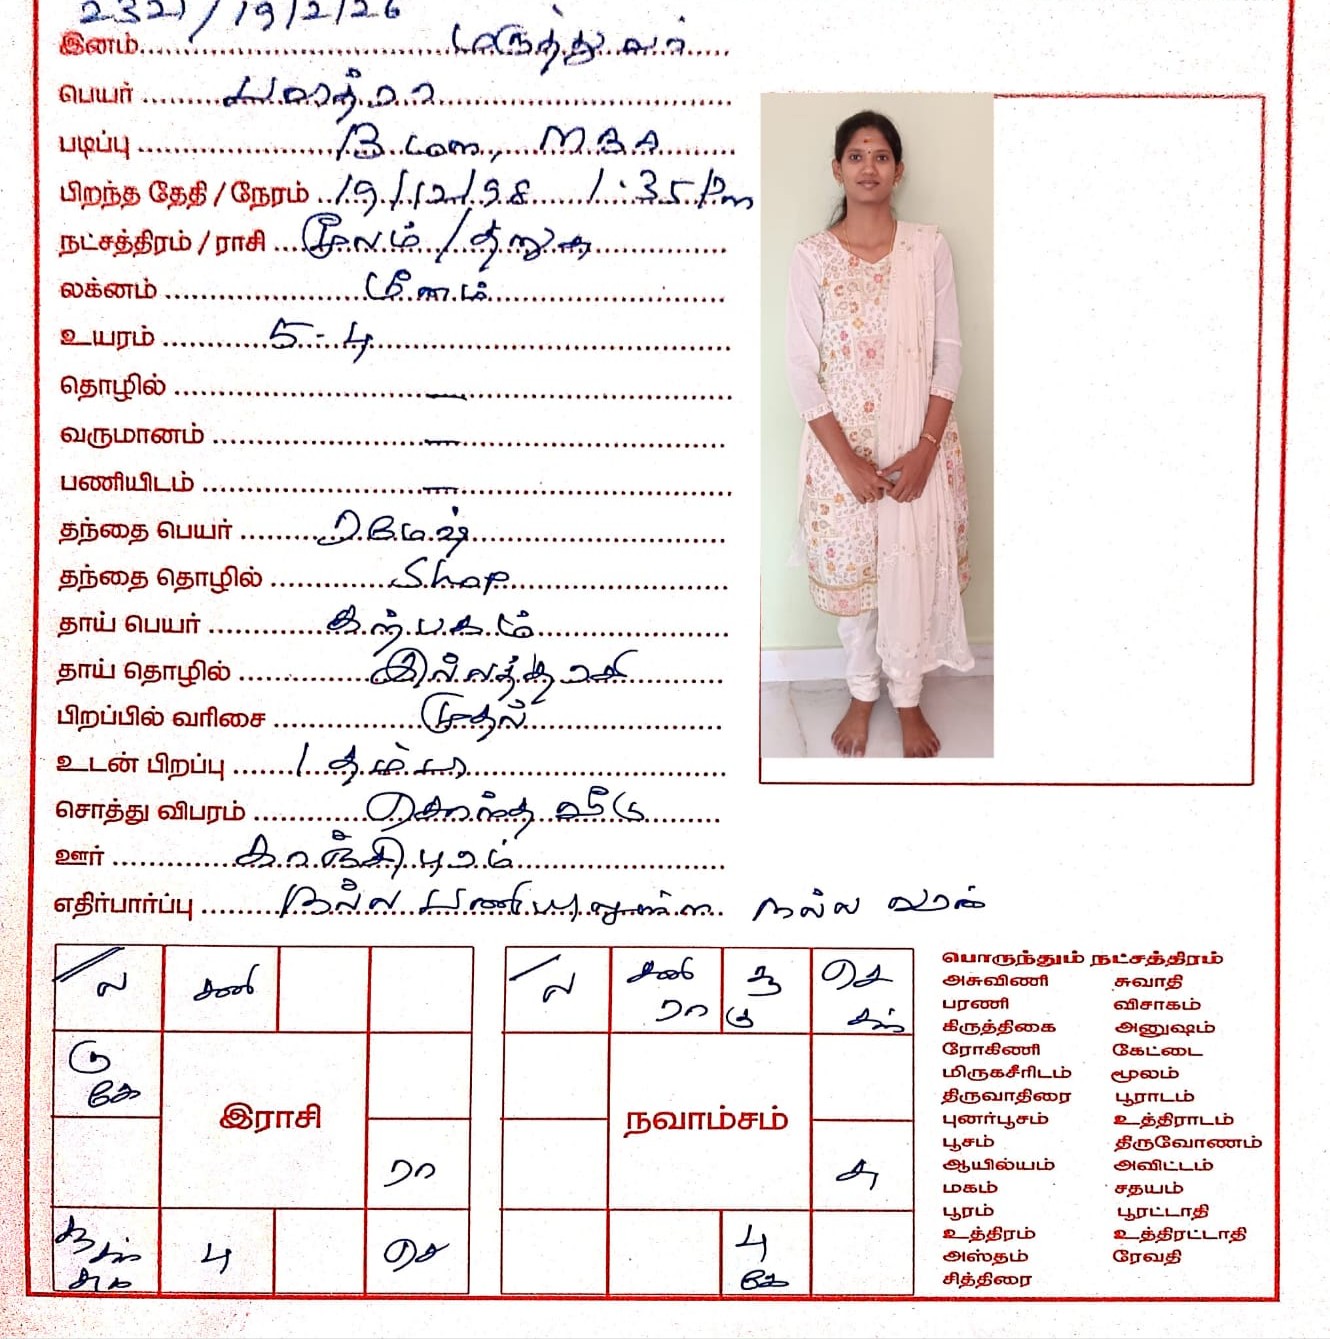 2321/19/2/26
இனம் மருத்துவர்
பெயர் பவித்ரா
படிப்பு B.com., MBA
பிறந்த தேதி / நேரம் 19/12/98 1:35 Pm
நட்சத்திரம் / ராசி மூலம் / தனுசு
லக்னம் மீனம்
உயரம் 5-4
தொழில் —
வருமானம் —
பணியிடம் —
தந்தை பெயர் ரமேஷ்
தந்தை தொழில் Shop
தாய் பெயர் கற்பகம்
தாய் தொழில் இல்லத்தரசி
பிறப்பில் வரிசை முதல்
உடன் பிறப்பு 1 தம்பி
சொத்து விபரம் சொந்த வீடு
ஊர் காஞ்சிபுரம்
எதிர்பார்ப்பு நல்ல பணியிலுள்ள நல்ல வரன்
ல சனி
கு
கே
இராசி
ரா
சூ சுக் பு செ
சந்
ல சனி சூ செ
ரா கு சுக்
நவாம்சம்
ச
பு
கே
பொருந்தும் நட்சத்திரம்
அசுவினி சுவாதி
பரணி விசாகம்
கிருத்திகை அனுஷம்
ரோகிணி கேட்டை
மிருகசீரிடம் மூலம்
திருவாதிரை பூராடம்
புனர்பூசம் உத்திராடம்
பூசம் திருவோணம்
ஆயில்யம் அவிட்டம்
மகம் சதயம்
பூரம் பூரட்டாதி
உத்திரம் உத்திரட்டாதி
அஸ்தம் ரேவதி
சித்திரை